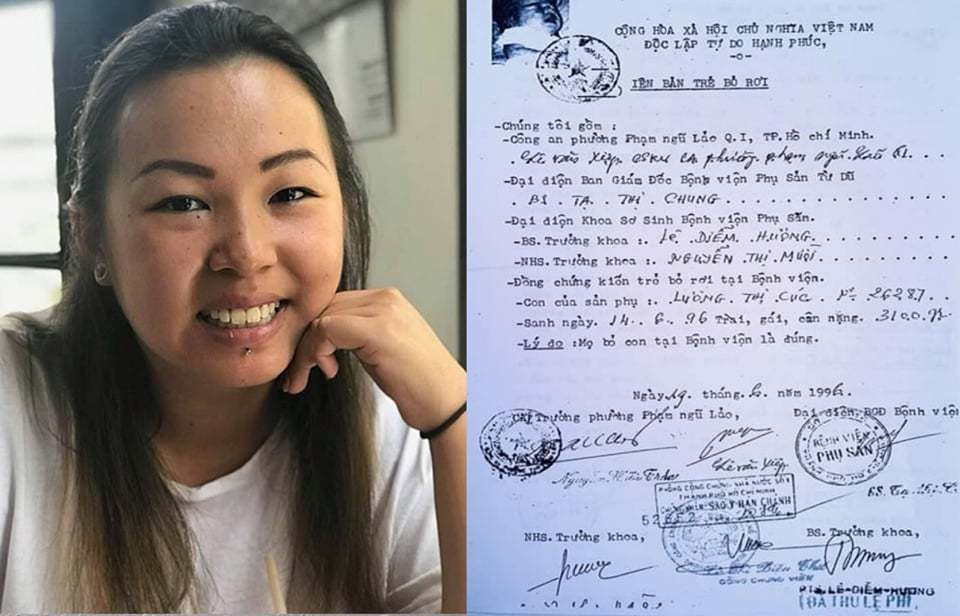 CỘNG HÒA XÃ HỘI CHỦ NGHĨA VIỆT NAM
ĐỘC LẬP TỰ DO HẠNH PHÚC,
-o-
IÊN BẢN TRẺ BỎ RƠI
-Chúng tôi gồm :
-Công an phường Phạm ngũ Lảo Q.I, TP.Hồ chí Minh.
. Lê văn Hiệp phường phạm ngũ Lão Q1. . . .
-Đại diện Ban Giám Đốc Bệnh viện Phụ Sản Từ Dũ
. BS . TẠ . THỊ . CHUNG . . . . . . . . . .
-Đại diện Khoa Sơ Sinh Bệnh viện Phụ Sản.
-BS.Trưởng khoa :. Lê DIỄM HƯƠNG . . . . . . . .
-NHS.Trưởng khoa : . NGUYỄN THỊ MUỘI . . . . . . .
-Đồng chứng kiến trẻ bỏ rơi tại Bệnh viện.
-Con của sản phụ :. LƯƠNG . THỊ CÚC . Nº 26287 . .
-Sanh ngày. 14 . 6 . 96 Trai, gái, cân nặng. 3100.gr
-Lý do :Mẹ bỏ con tại Bệnh viện là đúng.
Ngày 19 tháng. 6. năm 1996
CA Trưởng phường Phạm ngũ Lảo, Đại diện BGĐ Bệnh viện
BỆNH VIỆN
PHỤ SẢN
Lê văn Hiệp
PHÒNG CÔNG CHỨNG NHÀ NƯỚC SỐ 1
THÀNH PHỐ HỒ CHÍ MINH
SAO Y BẢN CHÁNH
NHS.Trưởng khoa, BS. Trưởng khoa,
CÔNG CHỨNG VIÊN
LÊ-DIỄM-HƯƠNG
ĐÃ THU LỆ PHÍ